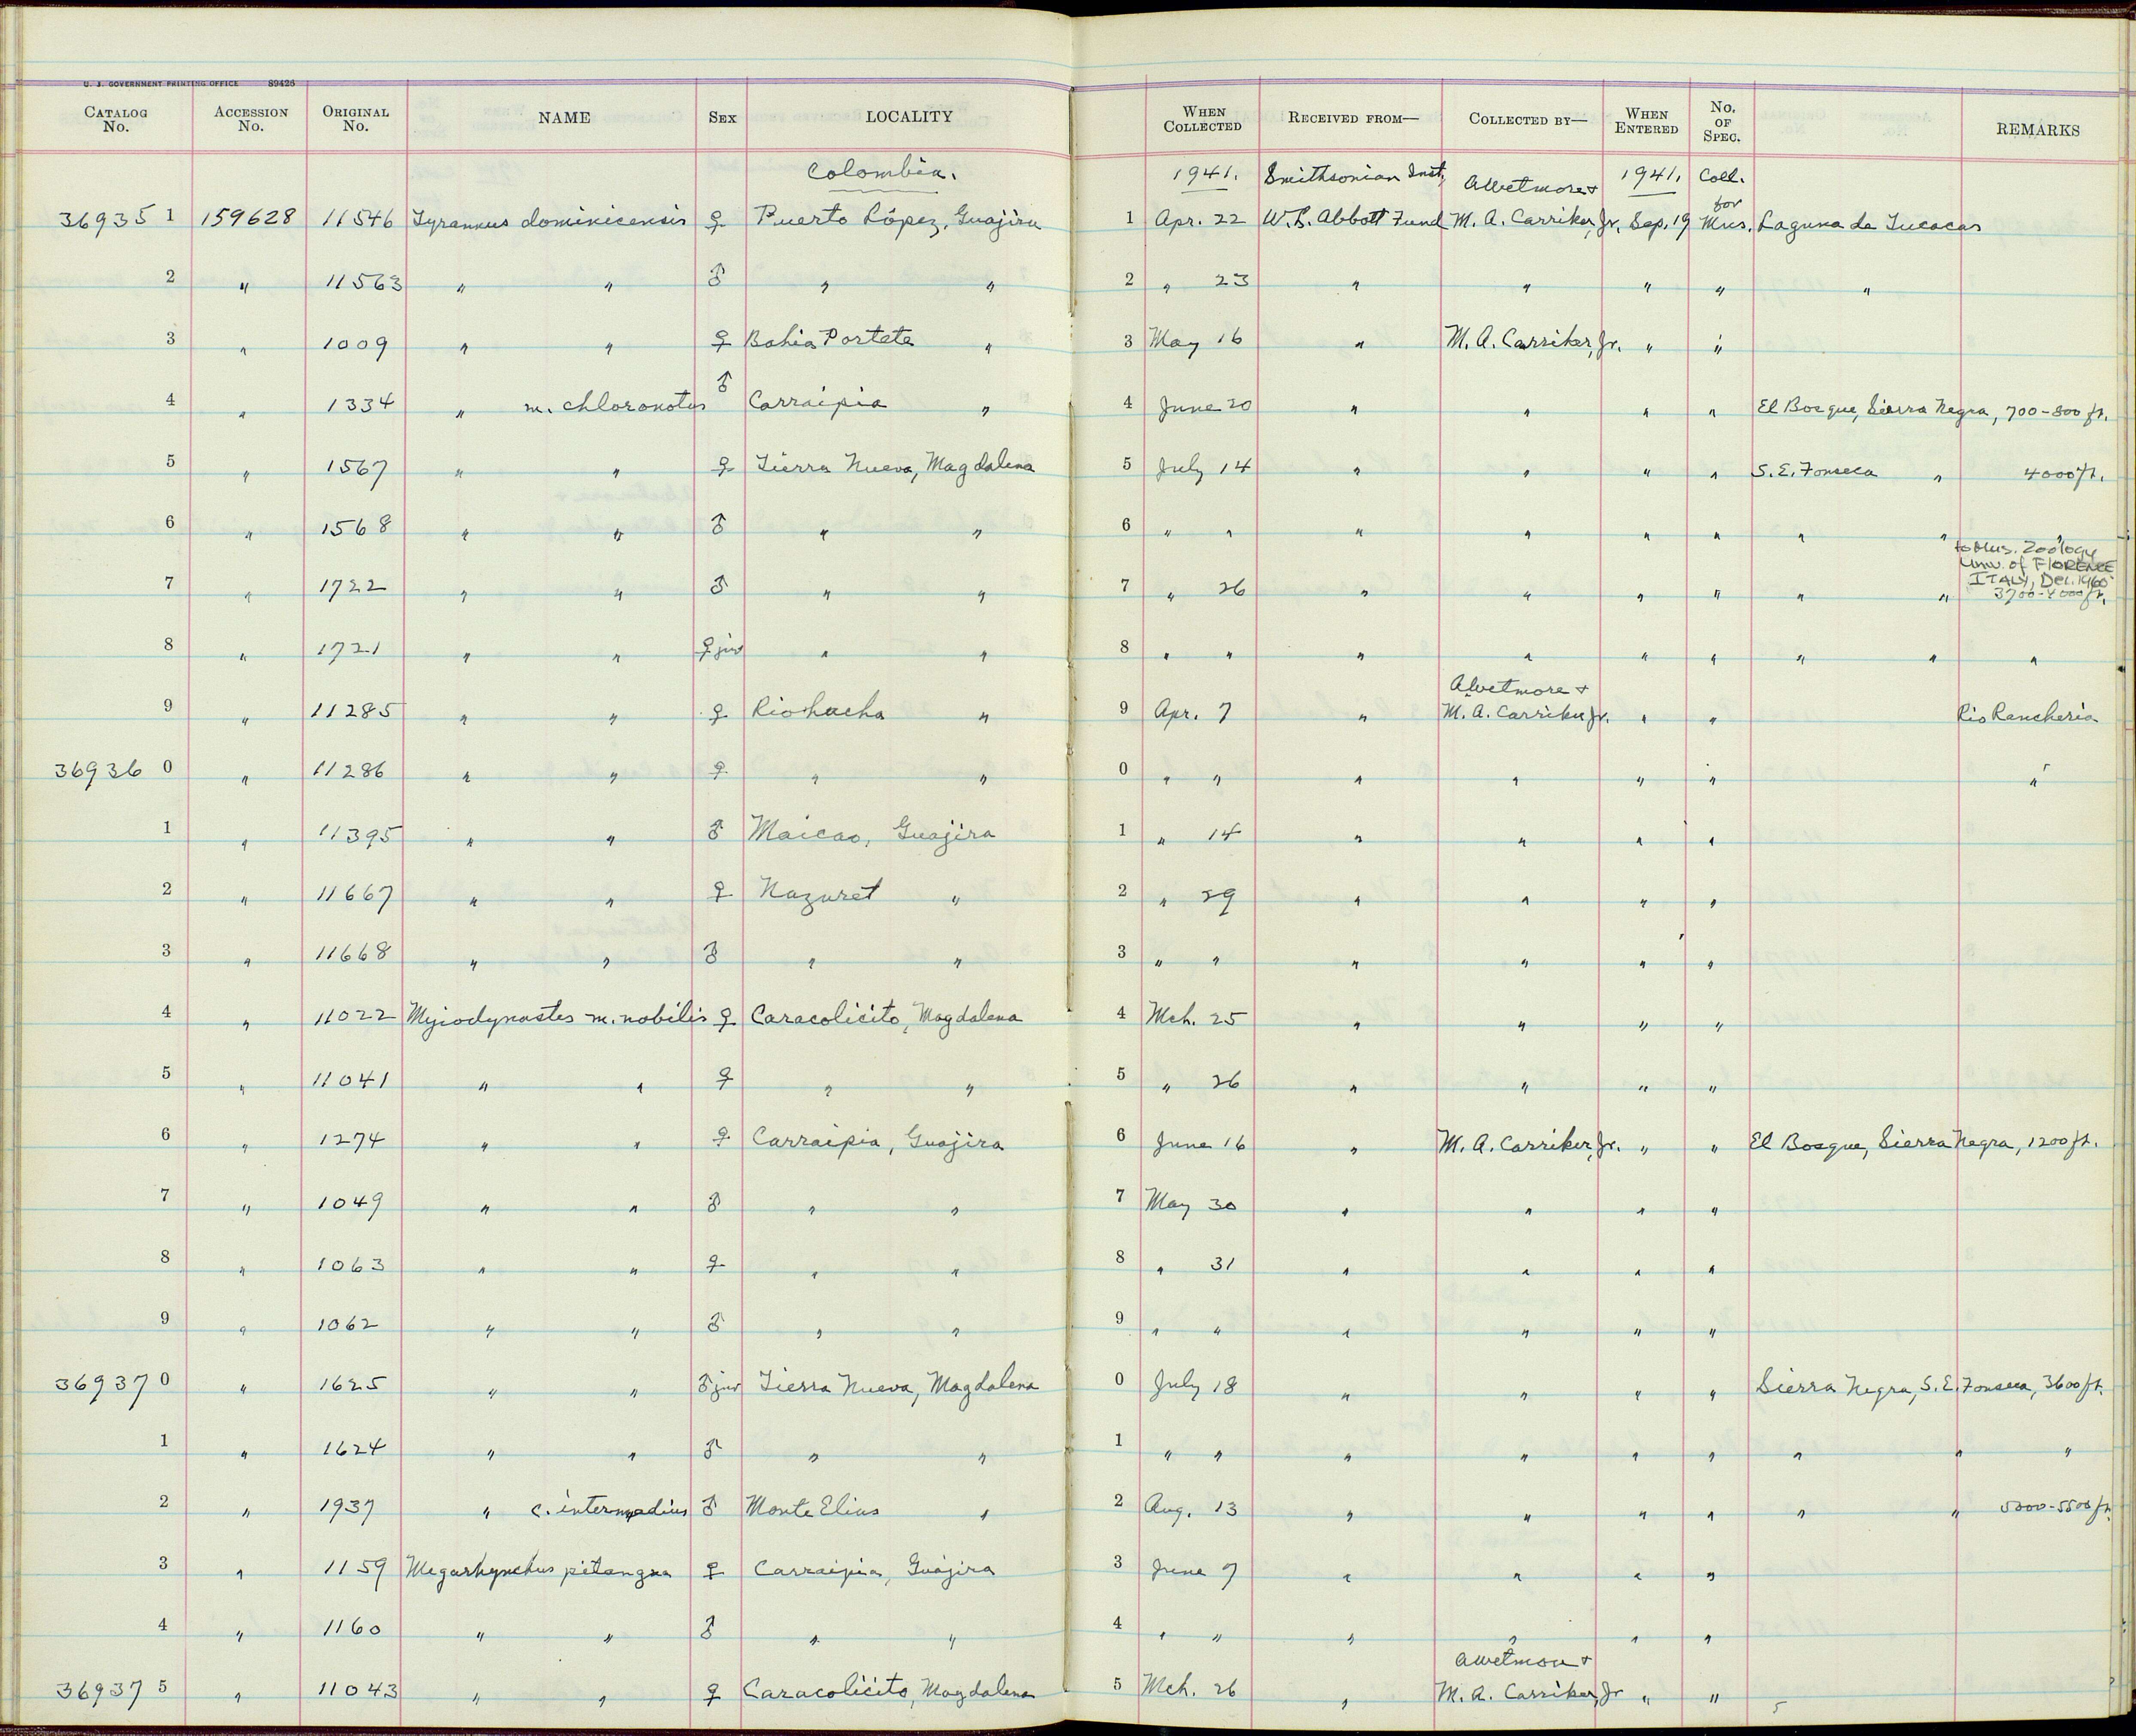 U. S. GOVERNMENT PRINTING OFFICE 89426
CATALOG No. ACCESSION No. ORIGINAL No. NAME SEX LOCALITY WHEN COLLECTED RECEIVED FROM— COLLECTED BY— WHEN ENTERED No. OF SPEC. REMARKS
Colombia. 1941. Smithsonian Inst. AWetmore + 1941. Coll. for
36935 1 159628 11546 Tyrannus dominicensis ♀ Puerto López, Guajira 1 Apr. 22 W. L. Abbott Fund M. A. Carriker, Jr. Sep. 19 Mus. Laguna de Tucacas
2 " 11563 " " ♂ " " 2 " 23 " " " " "
3 " 1009 " " ♀ Bahia Portete " 3 May 16 " M. A. Carriker, Jr. " "
4 " 1334 " m. chloronotus ♂ Carraipia " 4 June 20 " " " " El Bosque, Sierra Negra, 700-800 ft.
5 " 1567 " " ♀ Tierra Nueva, Magdalena 5 July 14 " " " " S. E. Fonseca " 4000 ft.
6 " 1568 " " ♂ " " 6 " " " " " " " " "
to Mus. Zoology
Univ. of FLORENCE
ITALY, Dec. 1960
7 " 1722 " " ♂ " " 7 " 26 " " " " " " 3700-4000 ft.
8 " 1721 " " ♀ juv " " 8 " " " " " " " " "
AWetmore +
9 " 11285 " " ♀ Riohacha " 9 Apr. 7 " M. A. Carriker Jr. " " Rio Rancheria
36936 0 " 11286 " " ♀ " " 0 " " " " " " "
1 " 11395 " " ♂ Maicao, Guajira 1 " 14 " " " "
2 " 11667 " " ♀ Nazaret " 2 " 29 " " " "
3 " 11668 " " ♂ " " 3 " " " " " "
4 " 11022 Myiodynastes m. nobilis ♀ Caracolicito, Magdalena 4 Mch. 25 " " " "
5 " 11041 " " ♀ " " 5 " 26 " " " "
6 " 1274 " " ♀ Carraipia, Guajira 6 June 16 " M. A. Carriker, Jr. " " El Bosque, Sierra Negra, 1200 ft.
7 " 1049 " " ♂ " " 7 May 30 " " " "
8 " 1063 " " ♀ " " 8 " 31 " " " "
9 " 1062 " " ♂ " " 9 " " " " " "
36937 0 " 1625 " " ♂ juv Tierra Nueva, Magdalena 0 July 18 " " " " Sierra Negra, S. E. Fonseca, 3600 ft.
1 " 1624 " " ♂ " " 1 " " " " " " " " "
2 " 1937 " c. intermedius ♂ Monte Elias " 2 Aug. 13 " " " " " " 5000-5500 ft.
3 " 1159 Megarhynchus pitangua ♀ Carraipia, Guajira 3 June 7 " " " "
4 " 1160 " " ♂ " " 4 " " " " " "
AWetmore +
36937 5 " 11043 " " ♀ Caracolicito, Magdalena 5 Mch. 26 " M. A. Carriker, Jr " "